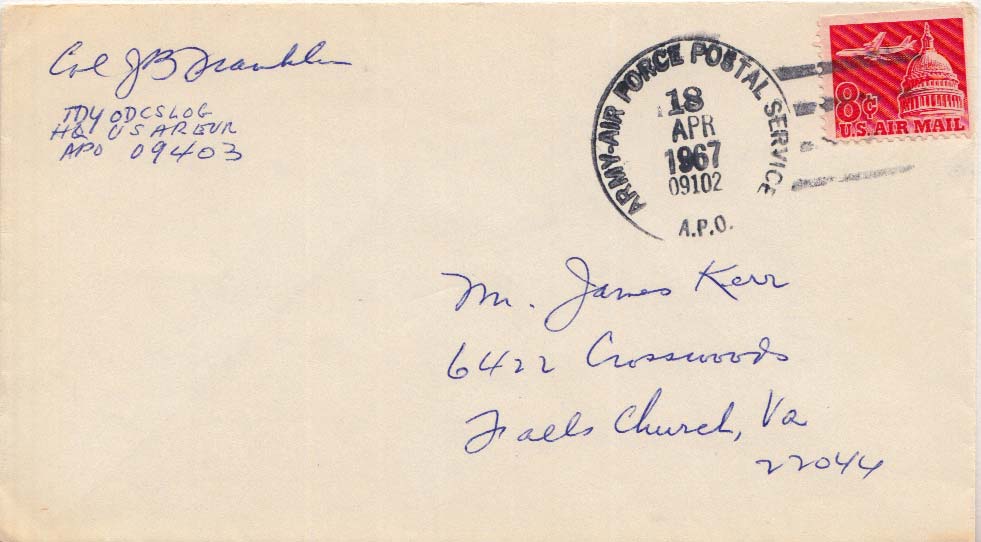 Col JB Franklin
TDY ODCSLOG
HQ USAREUR
APO 09403
ARMY-AIR FORCE POSTAL SERVICE
18
APR
1967
09102
A.P.O.
8¢
U.S. AIR MAIL
Mr. James Kerr
6422 Crosswoods
Falls Church, Va
22044